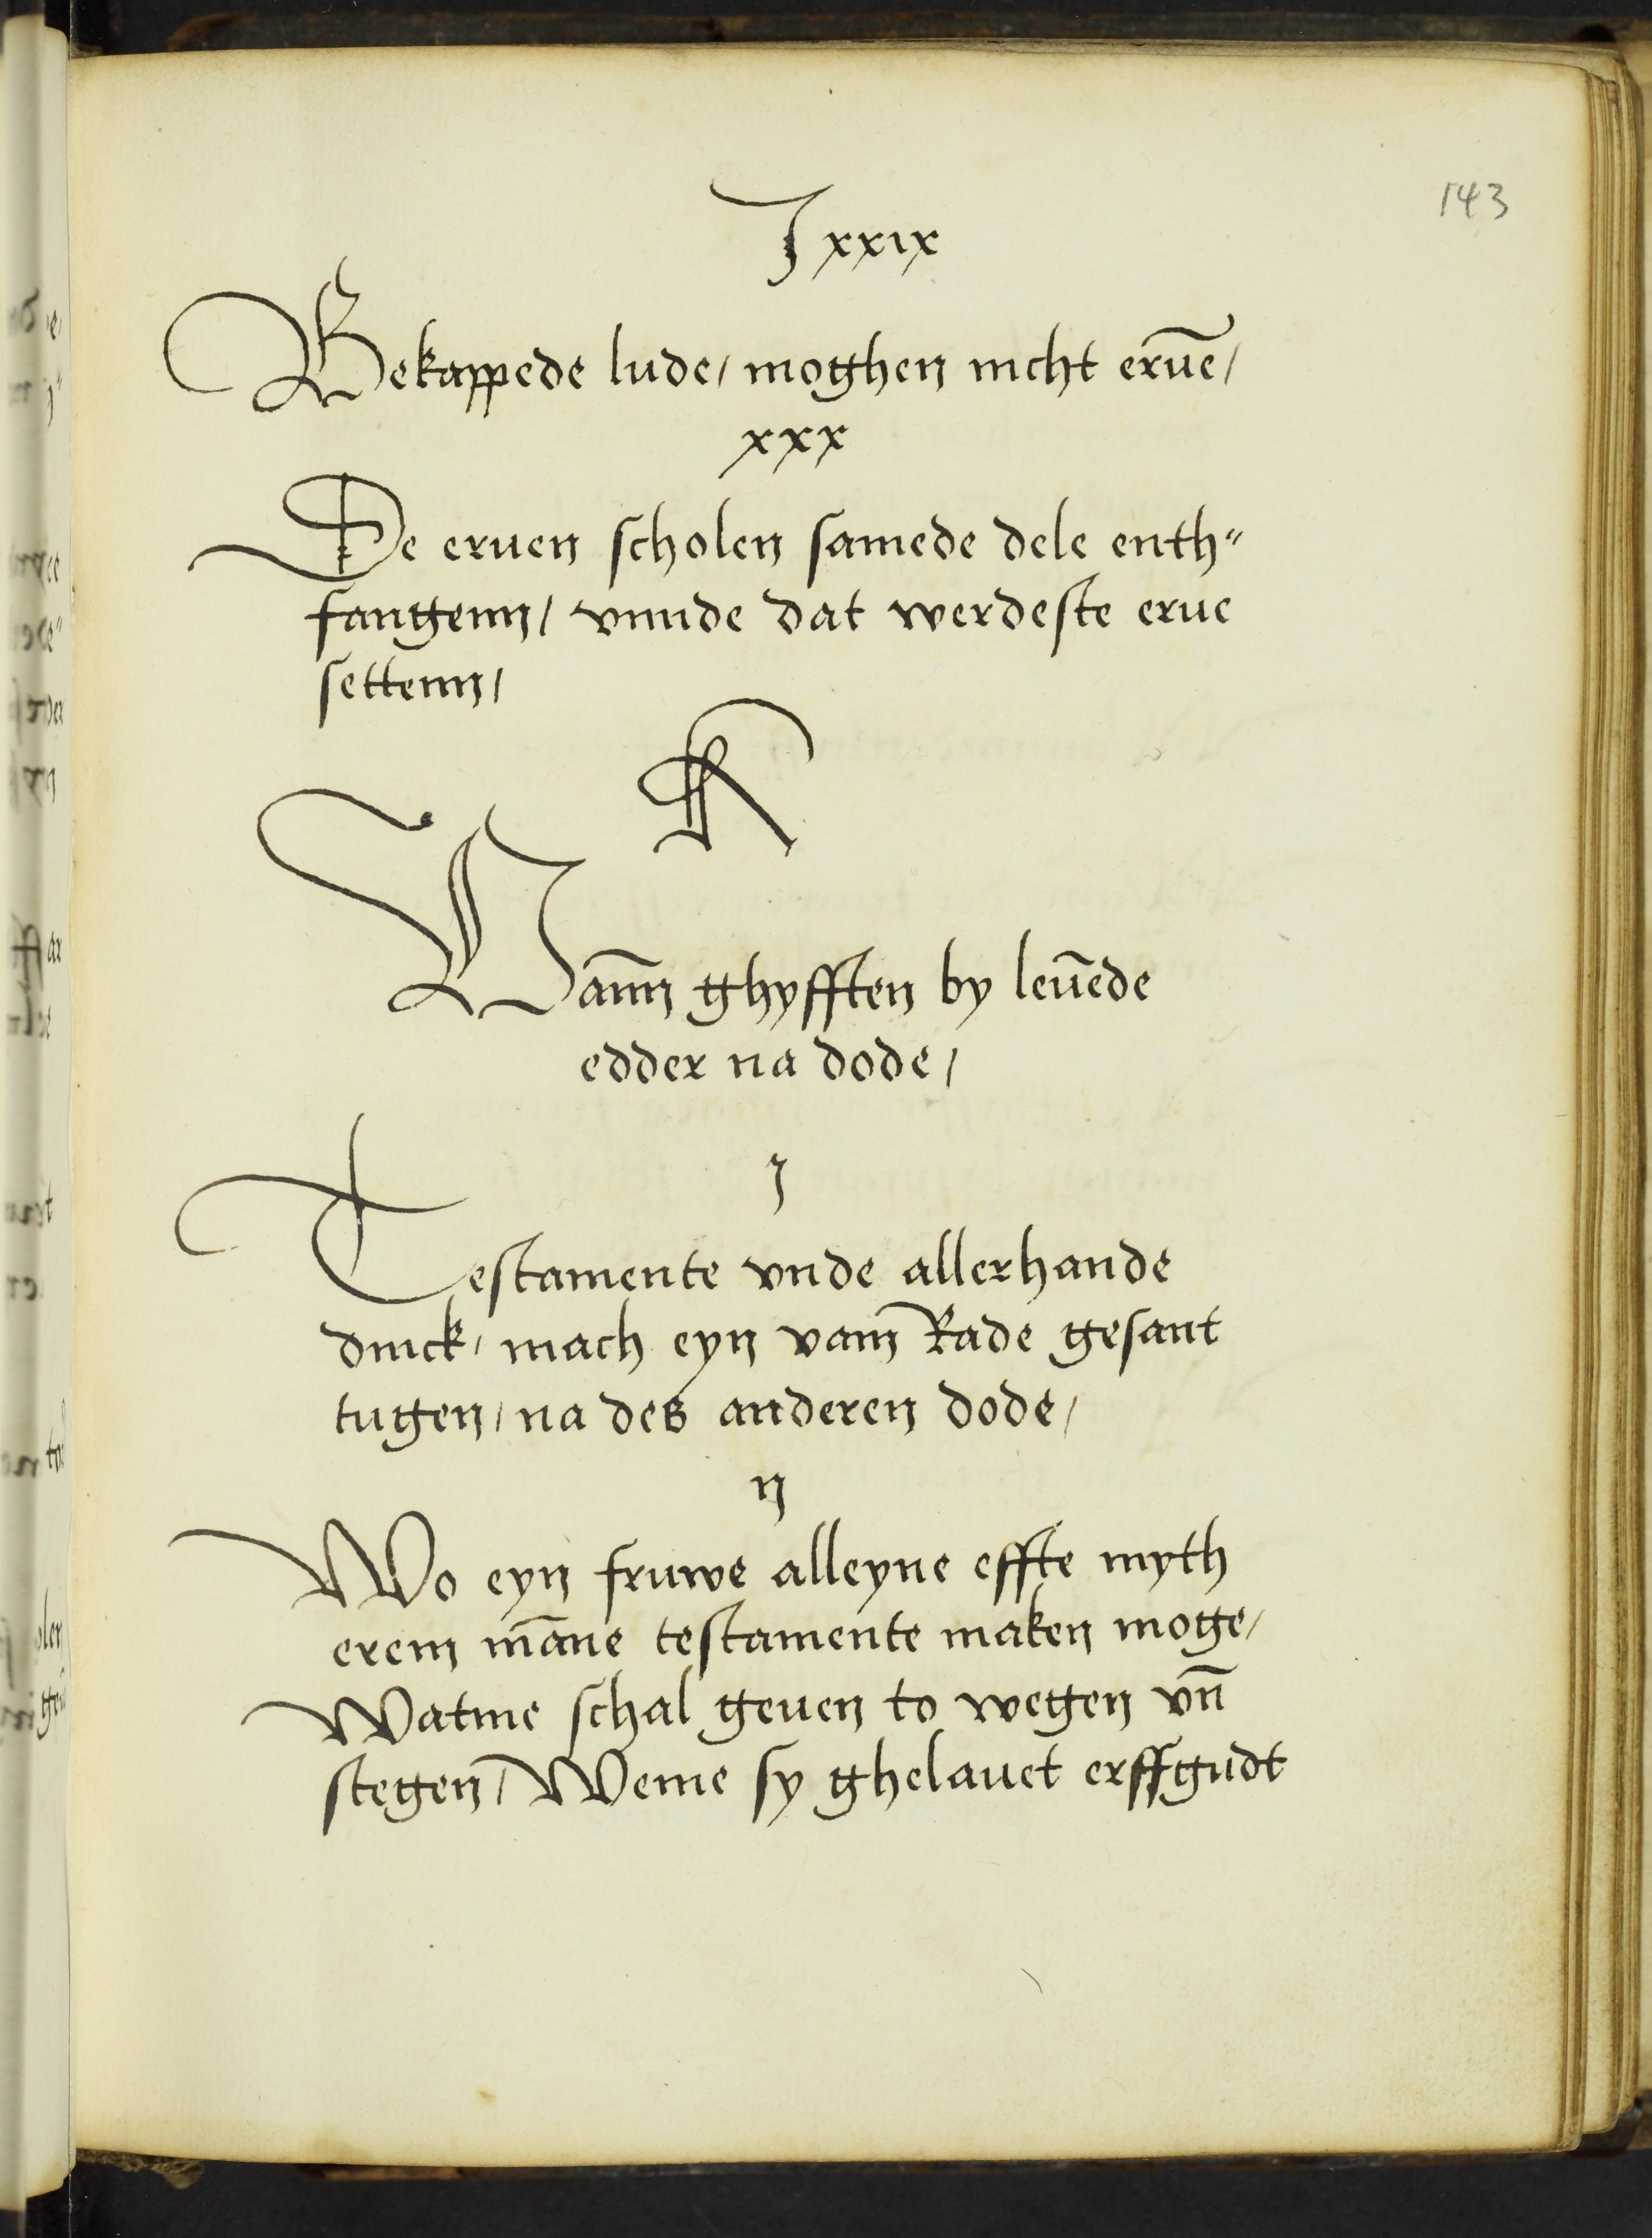 143
J xxix
Bekappede lude / moghen nicht erue̅ /
xxx
De eruen scholen samede dele enth"
fangenn / vnnde dat werdeste erue
settenn /
K
Vann̅ ghyfften by leue̅de
edder na dode /
j
Testamente vnde allerhande
dinck / mach eyn vam̅ Rade gesant
tugen / na des anderen dode /
ij
Wo eyn fruwe alleyne effte myth
erem ma̅ne testamente maken moge /
Watme schal geuen to wegen vn̅
stegen̅ / Weme sy ghelauet erffgudt